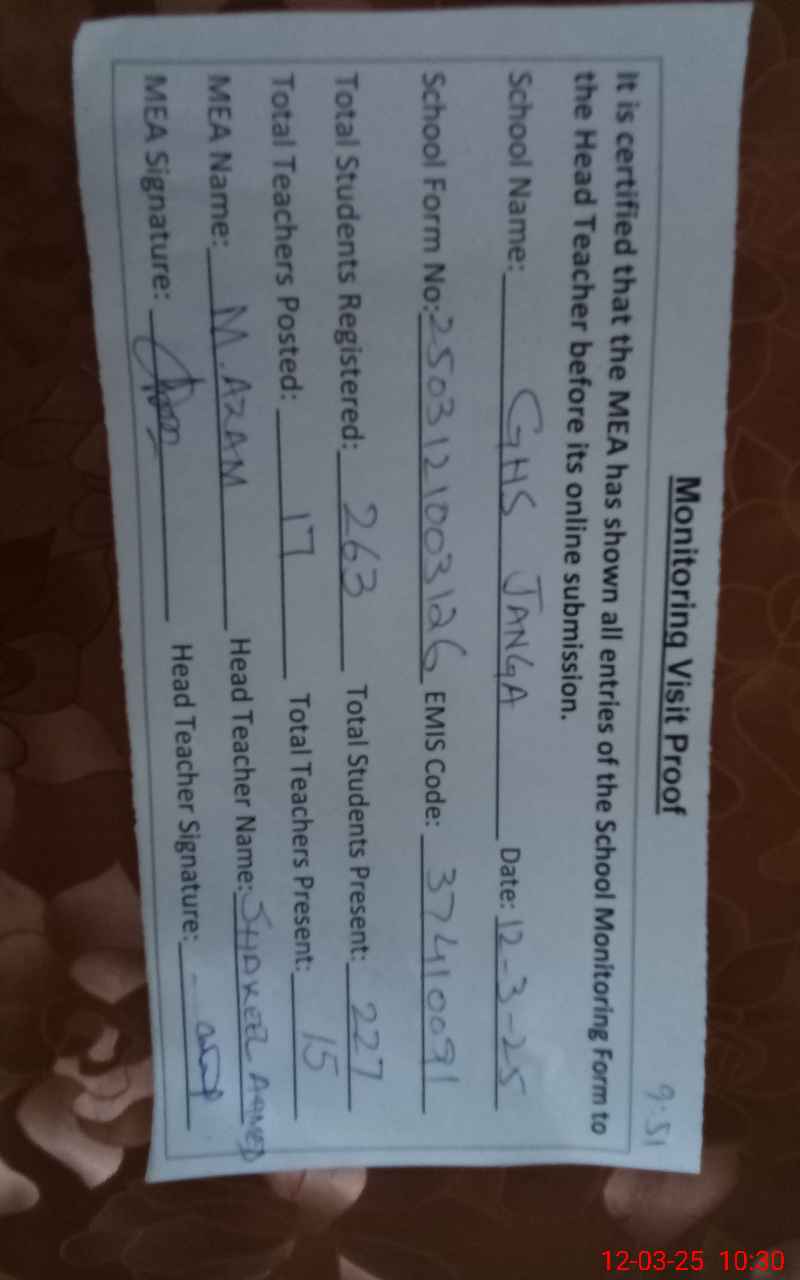 9:51
Monitoring Visit Proof
It is certified that the MEA has shown all entries of the School Monitoring Form to
the Head Teacher before its online submission.
School Name: GHS JANGA Date: 12-3-25
School Form No: 2503121003126 EMIS Code: 37410091
Total Students Registered: 263 Total Students Present: 227
Total Teachers Posted: 17 Total Teachers Present: 15
MEA Name: M. AZAM Head Teacher Name: SHAKEEL AHMED
MEA Signature: Head Teacher Signature:
12-03-25 10:30